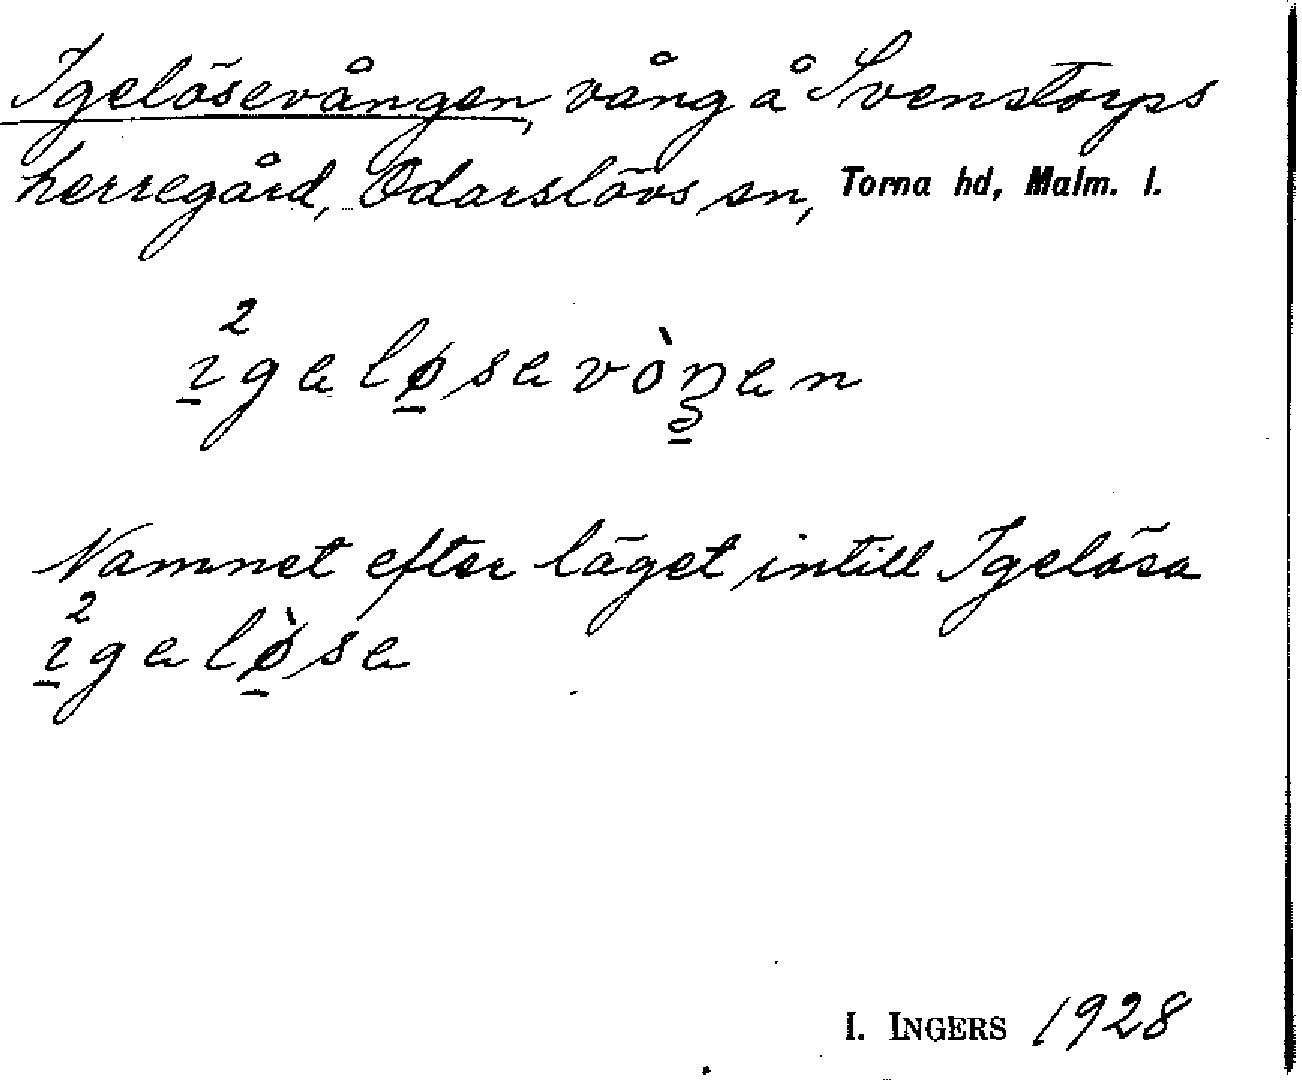 Igelösevången, vång å Svenstorps
herregård, Odarslövs sn, Torna hd, Malm. l.
ɪ̱²gaḻøsavòŋ̱an
Namnet efter läget intill Igelösa
ɪ̱²galø̱̀sa
I. INGERS 1928